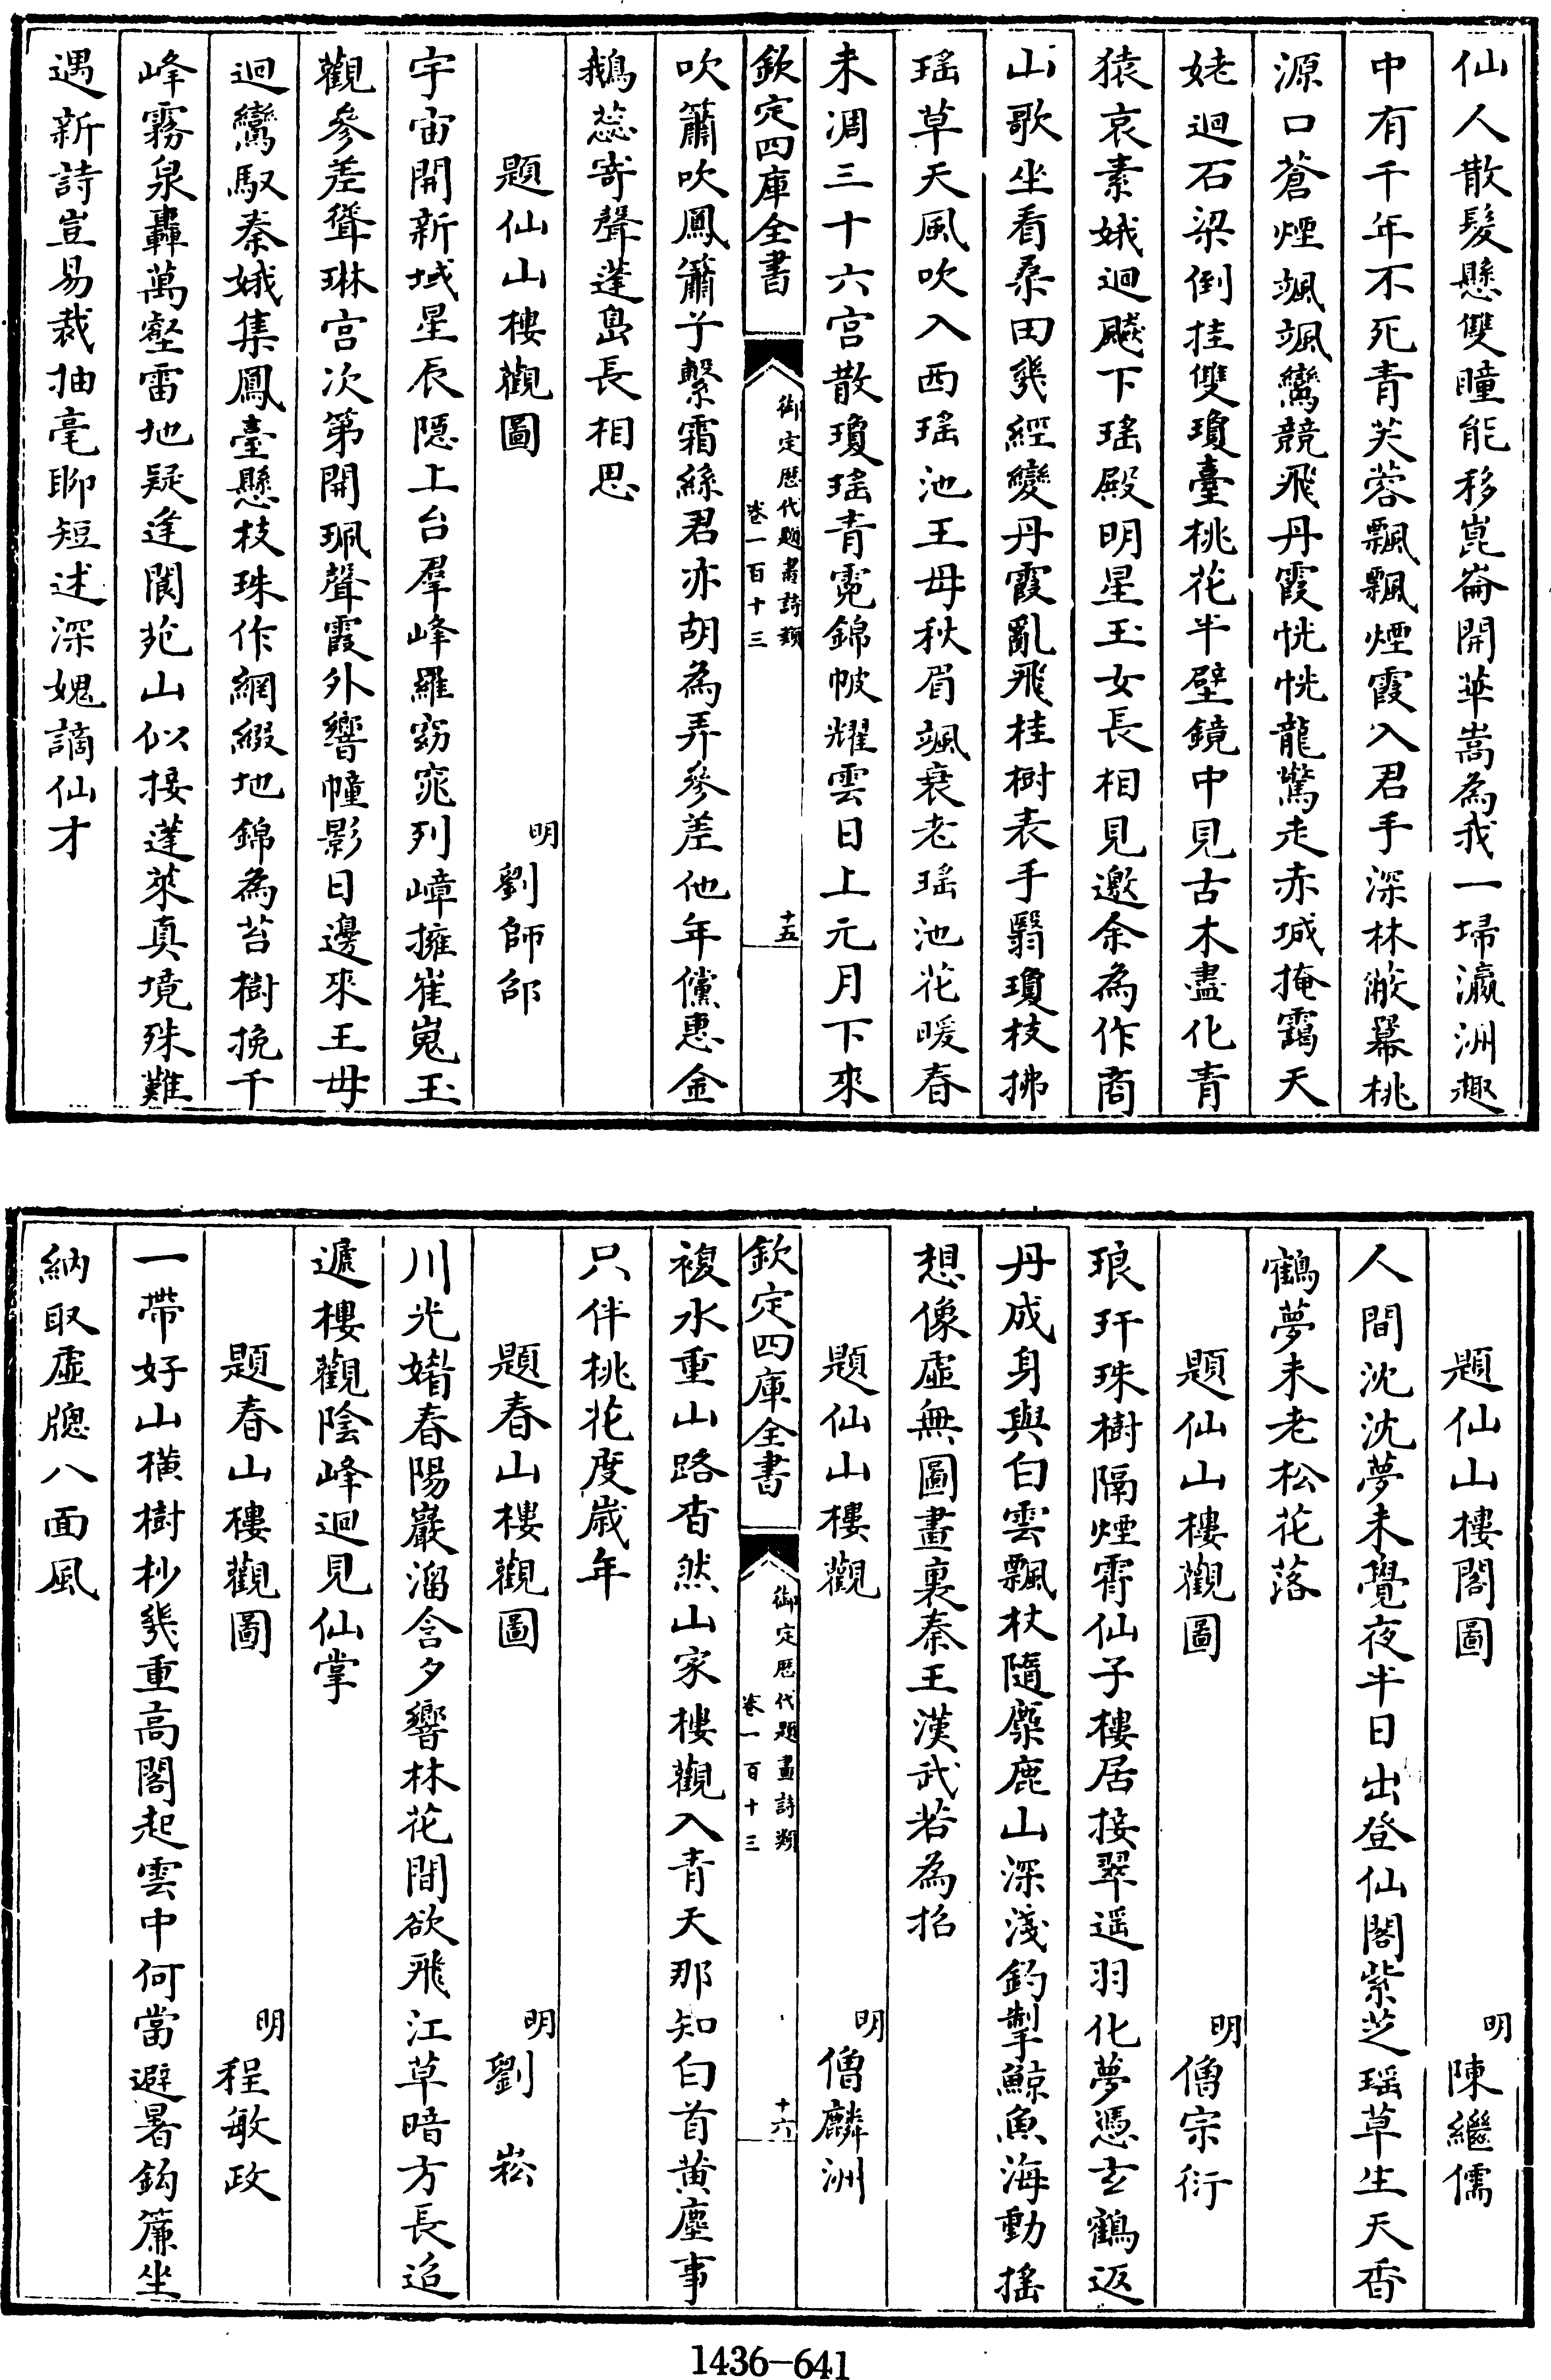 仙人散髮懸雙瞳能移崑崙開華嵩為我一埽瀛洲趣
中有千年不死青芙蓉飄飄煙霞入君手深林蔽羃桃
源口蒼煙颯颯鸞競飛丹霞恍恍龍驚走赤城掩靄天
姥迴石梁倒挂雙瓊臺桃花半壁鏡中見古木盡化青
猿哀素娥迴飈下瑤殿明星玉女長相見邀余為作商
山歌坐看桑田幾經變丹霞亂飛桂樹表手翳瓊枝拂
瑤草天風吹入西瑤池王母秋眉颯衰老瑤池花暖春
未凋三十六宮散瓊瑤青霓錦帔耀雲日上元月下來
欽定四庫全書
御定歷代題畫詩類
卷一百十三
十五
吹簫吹鳳簫予繫霜絲君亦胡為弄參差他年儻惠金
鵝蕊寄聲蓬島長相思
題仙山樓觀圖
明劉師邵
宇宙開新域星辰隱上台羣峰羅窈窕列嶂擁崔嵬玉
觀參差聳琳宮次第開珮聲霞外響幢影日邊來王母
迴鸞馭秦娥集鳳臺懸枝珠作網綴地錦為苔樹挽千
峰霧泉轟萬壑雷地疑逢閬苑山似接蓬萊真境殊難
遇新詩豈易裁抽毫聊短述深媿謫仙才
題仙山樓閣圖
明陳繼儒
人間沈沈夢未覺夜半日出登仙閣紫芝瑤草生天香
鶴夢未老松花落
題仙山樓觀圖
明僧宗衍
琅玕珠樹隔煙霄仙子樓居接翠遥羽化夢憑玄鶴返
丹成身與白雲飄杖隨麋鹿山深淺釣掣鯨魚海動搖
想像虛無圖畫裏秦王漢武若為招
題仙山樓觀
明僧麟洲
欽定四庫全書
御定歷代題畫詩類
卷一百十三
十六
複水重山路杳然山家樓觀入青天那知白首黃塵事
只伴桃花度歲年
題春山樓觀圖
明劉崧
川光媘春陽巖溜含夕響林花間欲飛江草暗方長迢
遞樓觀陰峰迴見仙掌
題春山樓觀圖
明程敏政
一帶好山橫樹杪幾重高閣起雲中何當避暑鈎簾坐
納取虛牕八面風
1436-641